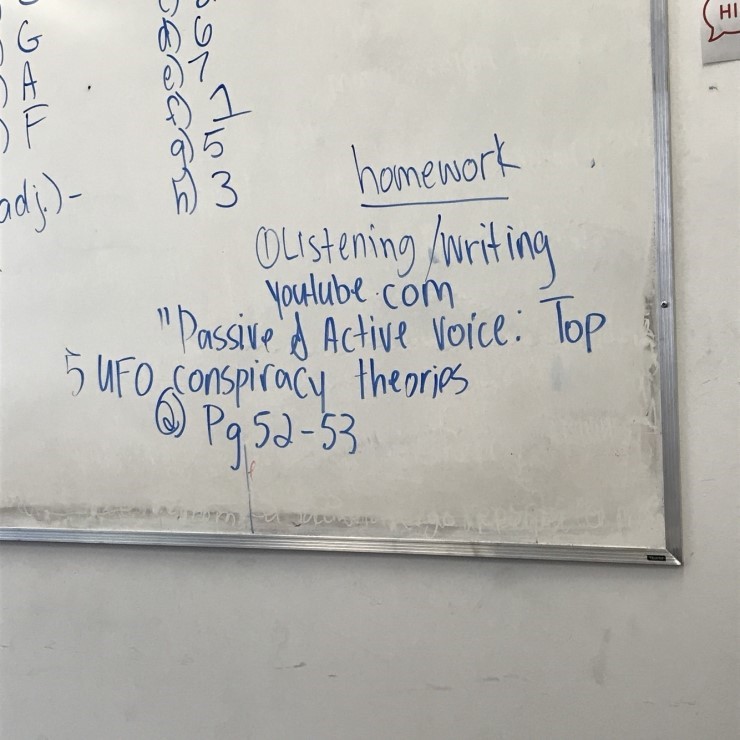 G
A
F
adj.)-
d) 6
e) 7
f) 1
g) 5
h) 3
homework
① Listening /writing
Youtube.com
"Passive & Active Voice: Top
5 UFO conspiracy theories
② Pg 52-53
HI